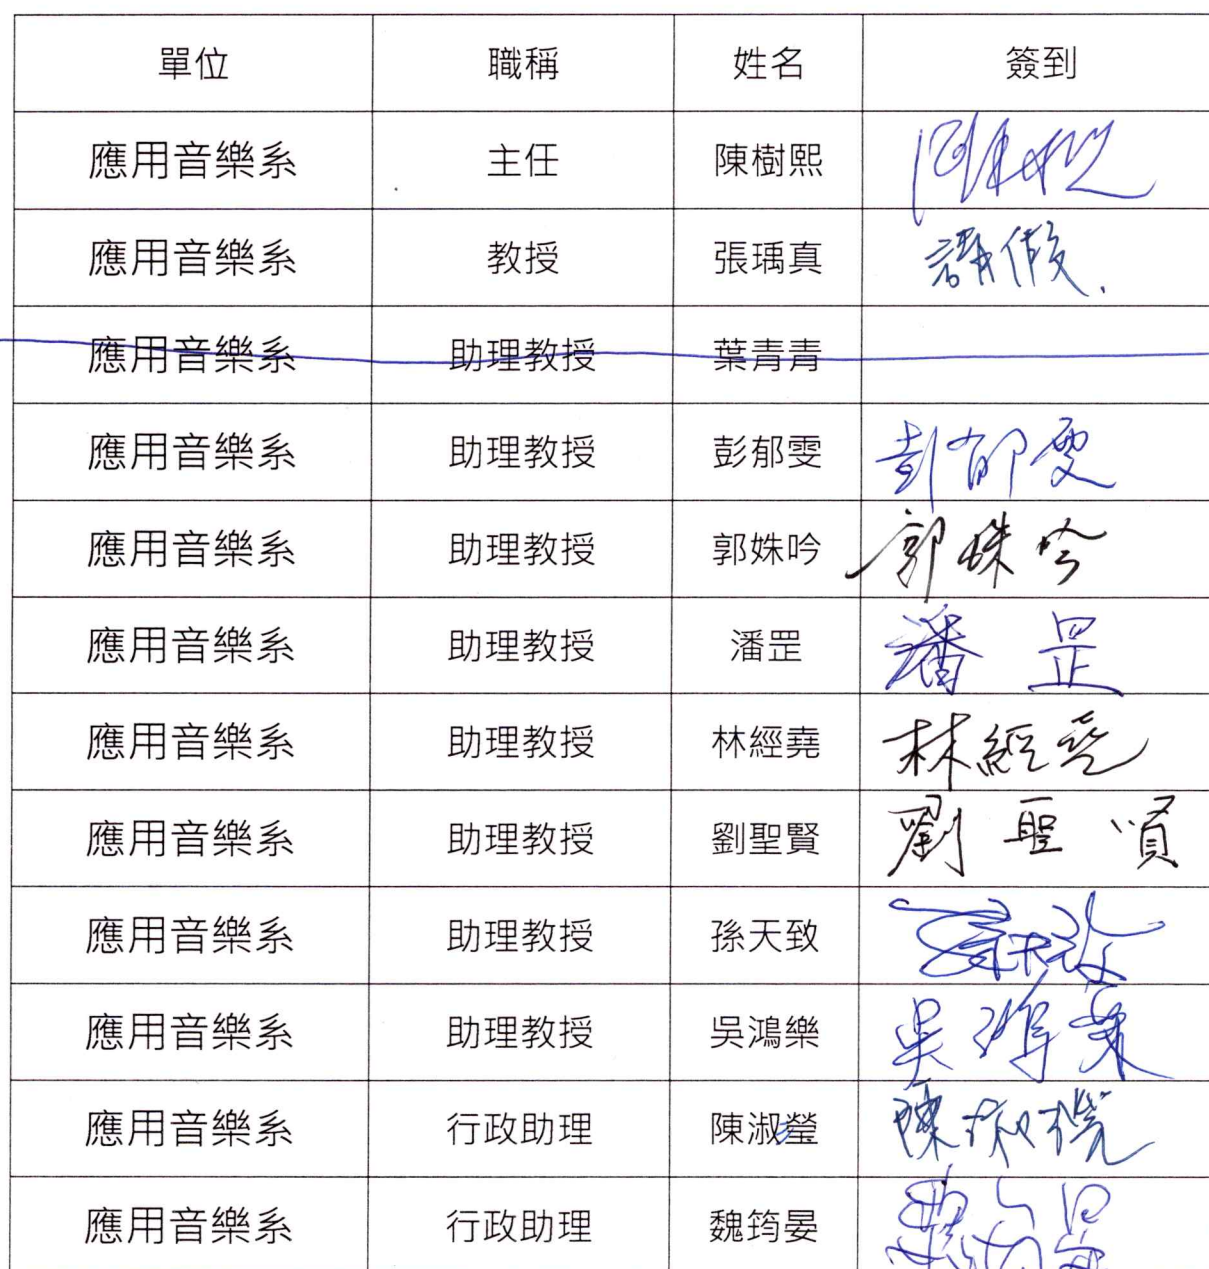 單位 職稱 姓名 簽到
應用音樂系 主任 陳樹熙
應用音樂系 教授 張瑀真 請假.
應用音樂系 助理教授 葉青青
應用音樂系 助理教授 彭郁雯 彭郁雯
應用音樂系 助理教授 郭姝吟 郭姝吟
應用音樂系 助理教授 潘罡 潘罡
應用音樂系 助理教授 林經堯 林經堯
應用音樂系 助理教授 劉聖賢 劉聖賢
應用音樂系 助理教授 孫天致
應用音樂系 助理教授 吳鴻樂 吳鴻樂
應用音樂系 行政助理 陳淑瑩
應用音樂系 行政助理 魏筠晏